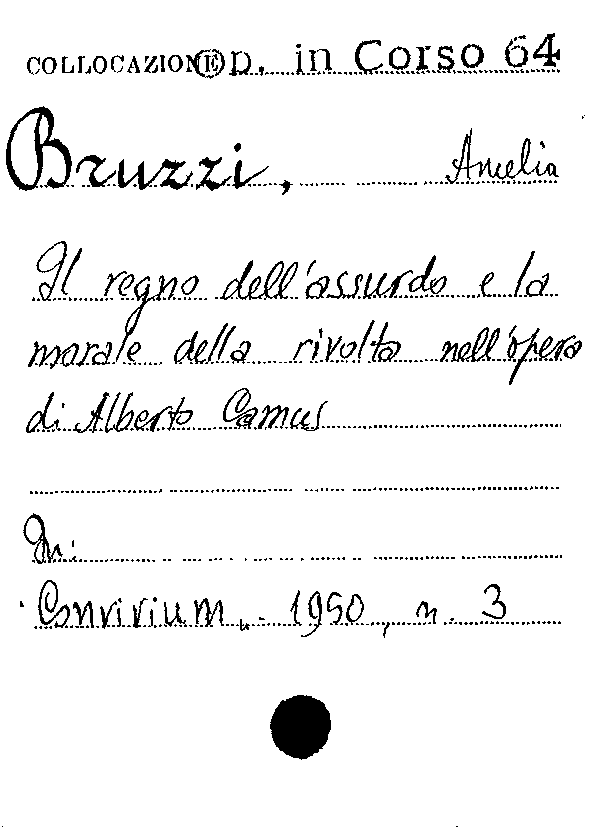 COLLOCAZIONE p. in Corso 64
Bruzzi, Amelia
Il regno dell'assurdo e la
morale della rivolta nell'opera
di Alberto Camus
In:
Convivium, 1950, n. 3